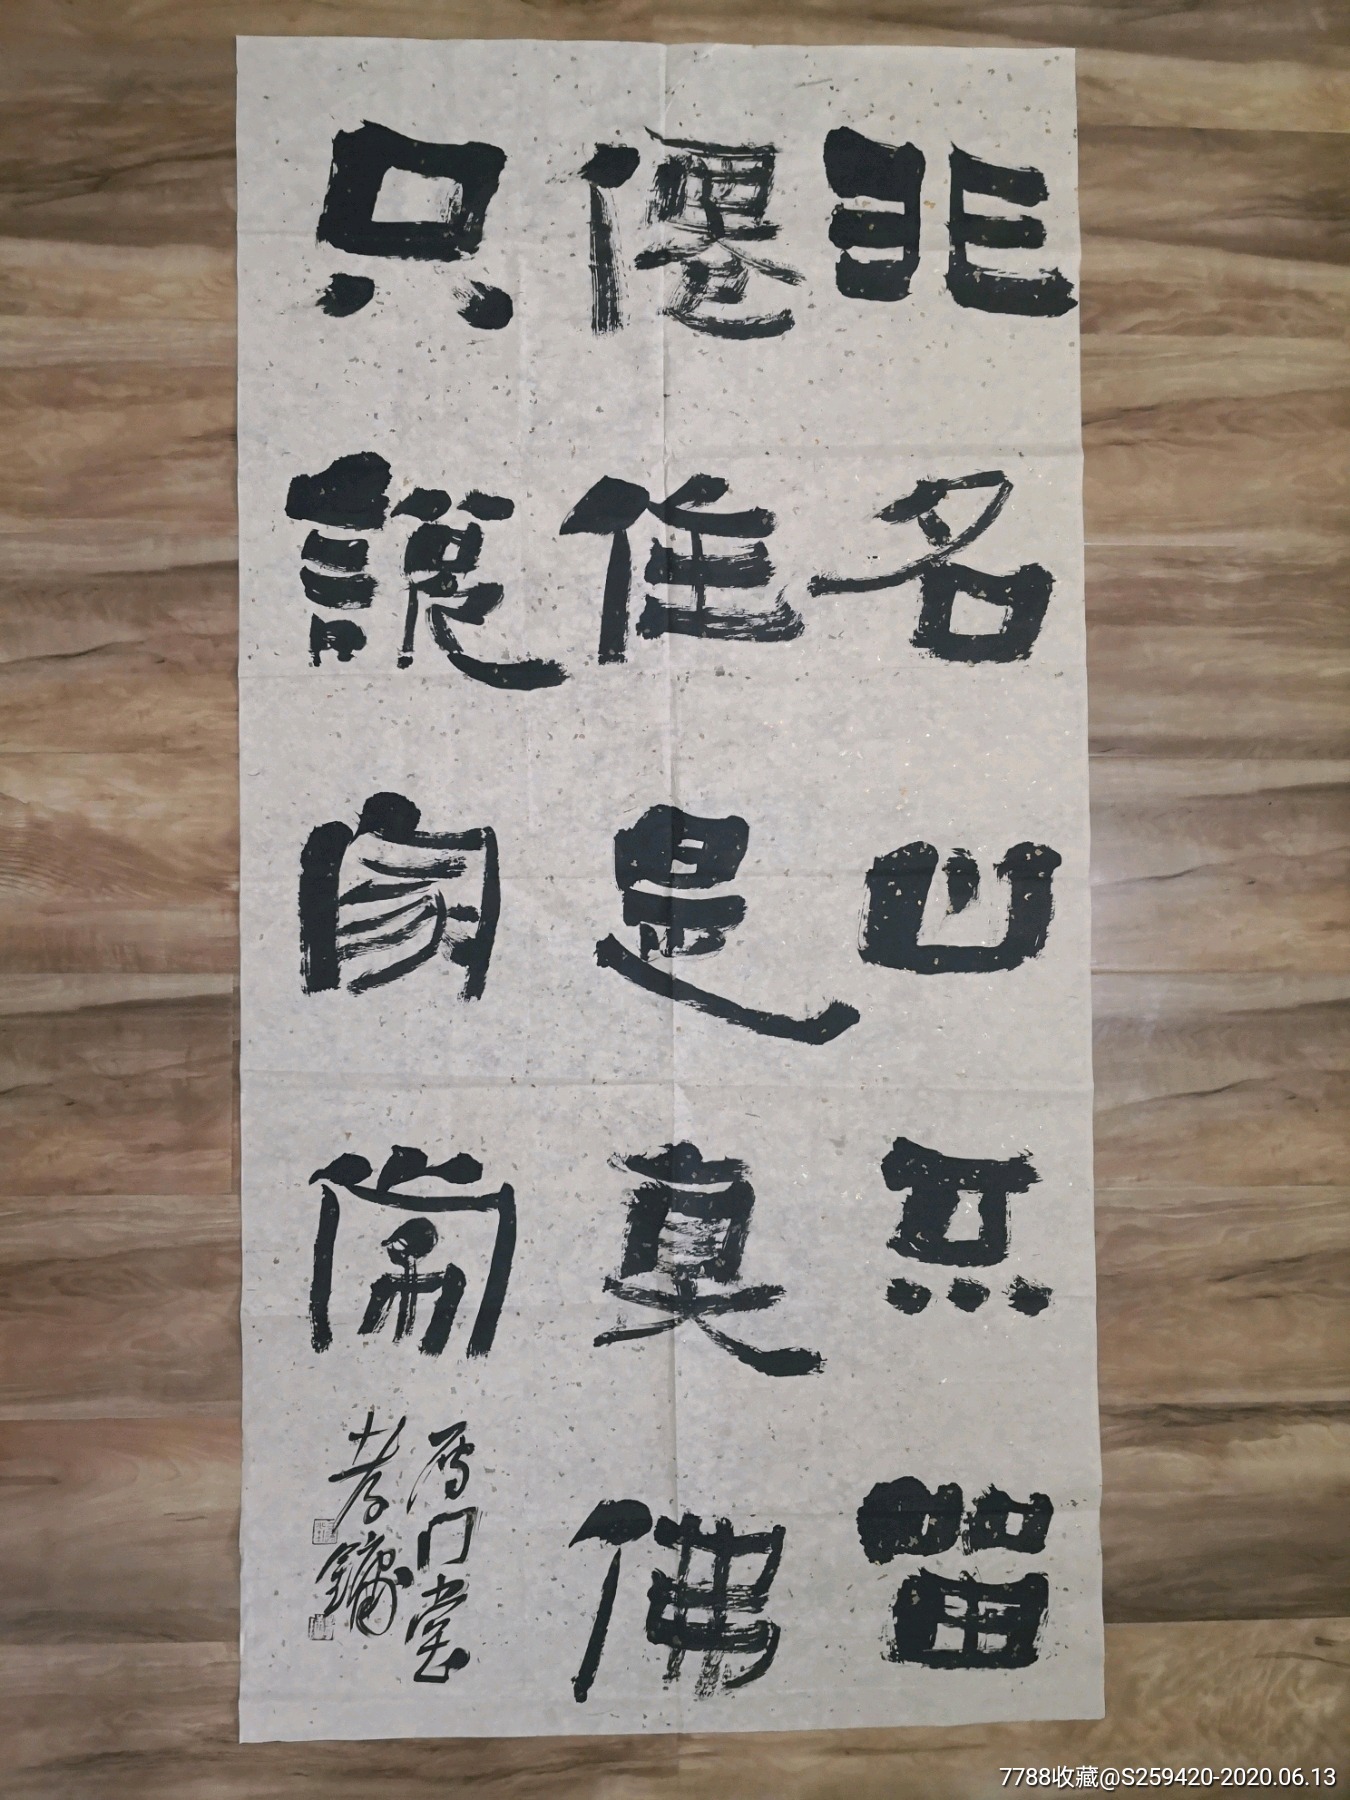 非名山不留
僊住是真佛
只說家常
雁门堂
孝鏞
7788收藏@S259420-2020.06.13